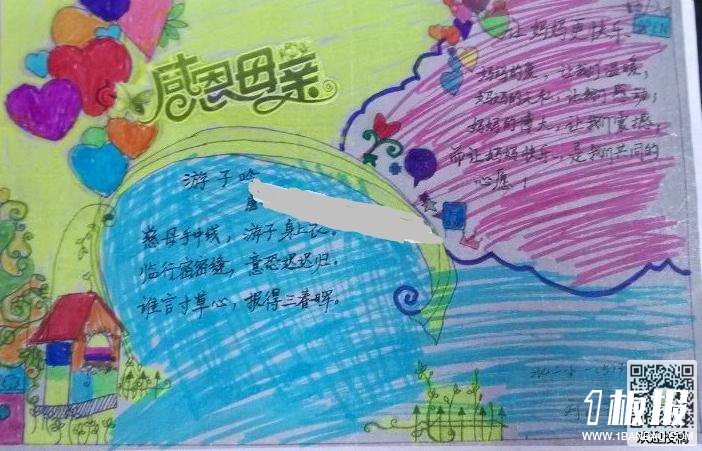 感恩母亲
让妈妈更快乐
妈妈的爱，让我们温暖，
妈妈的无私，让我们感动，
妈妈的博大，让我们震撼，
而让妈妈快乐，是我们共同的
心愿！
游子吟
唐
慈母手中线，游子身上衣。
临行密密缝，意恐迟迟归。
谁言寸草心，报得三春晖。
1板报
WWW.1BANBAO.COM
欢迎投稿